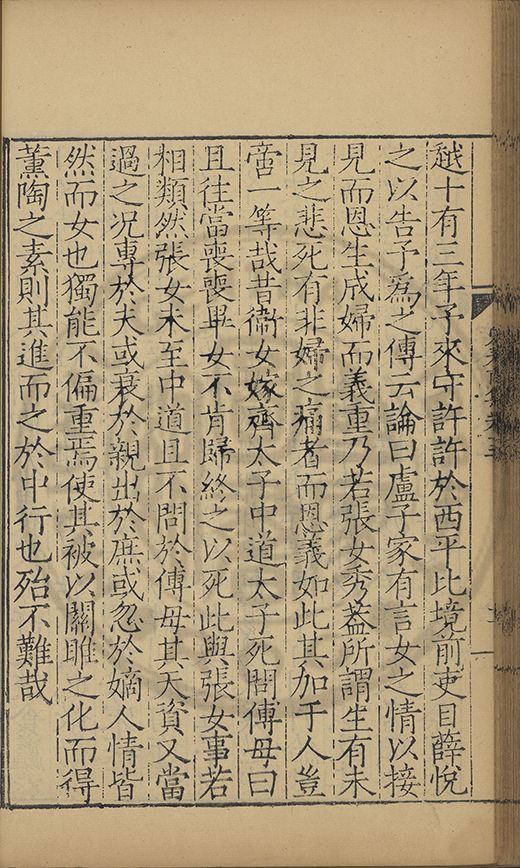 越十有三年予來守許許於西平比境前吏目薛悅
之以告予爲之傳云論曰盧子家有言女之情以接
見而恩生成婦而義重乃若張女秀葢所謂生有未
見之悲死有非婦之痛者而恩義如此其加于人豈
啻一等哉昔衞女嫁齊太子中道太子死問傅母曰
且往當喪喪畢女不肯歸終之以死此與張女事若
相類然張女未至中道且不問於傅母其天資又當
過之况專於夫或衰於親出於庶或忽於嫡人情皆
然而女也獨能不偏重焉使其被以關雎之化而得
薰陶之素則其進而之於中行也殆不難哉